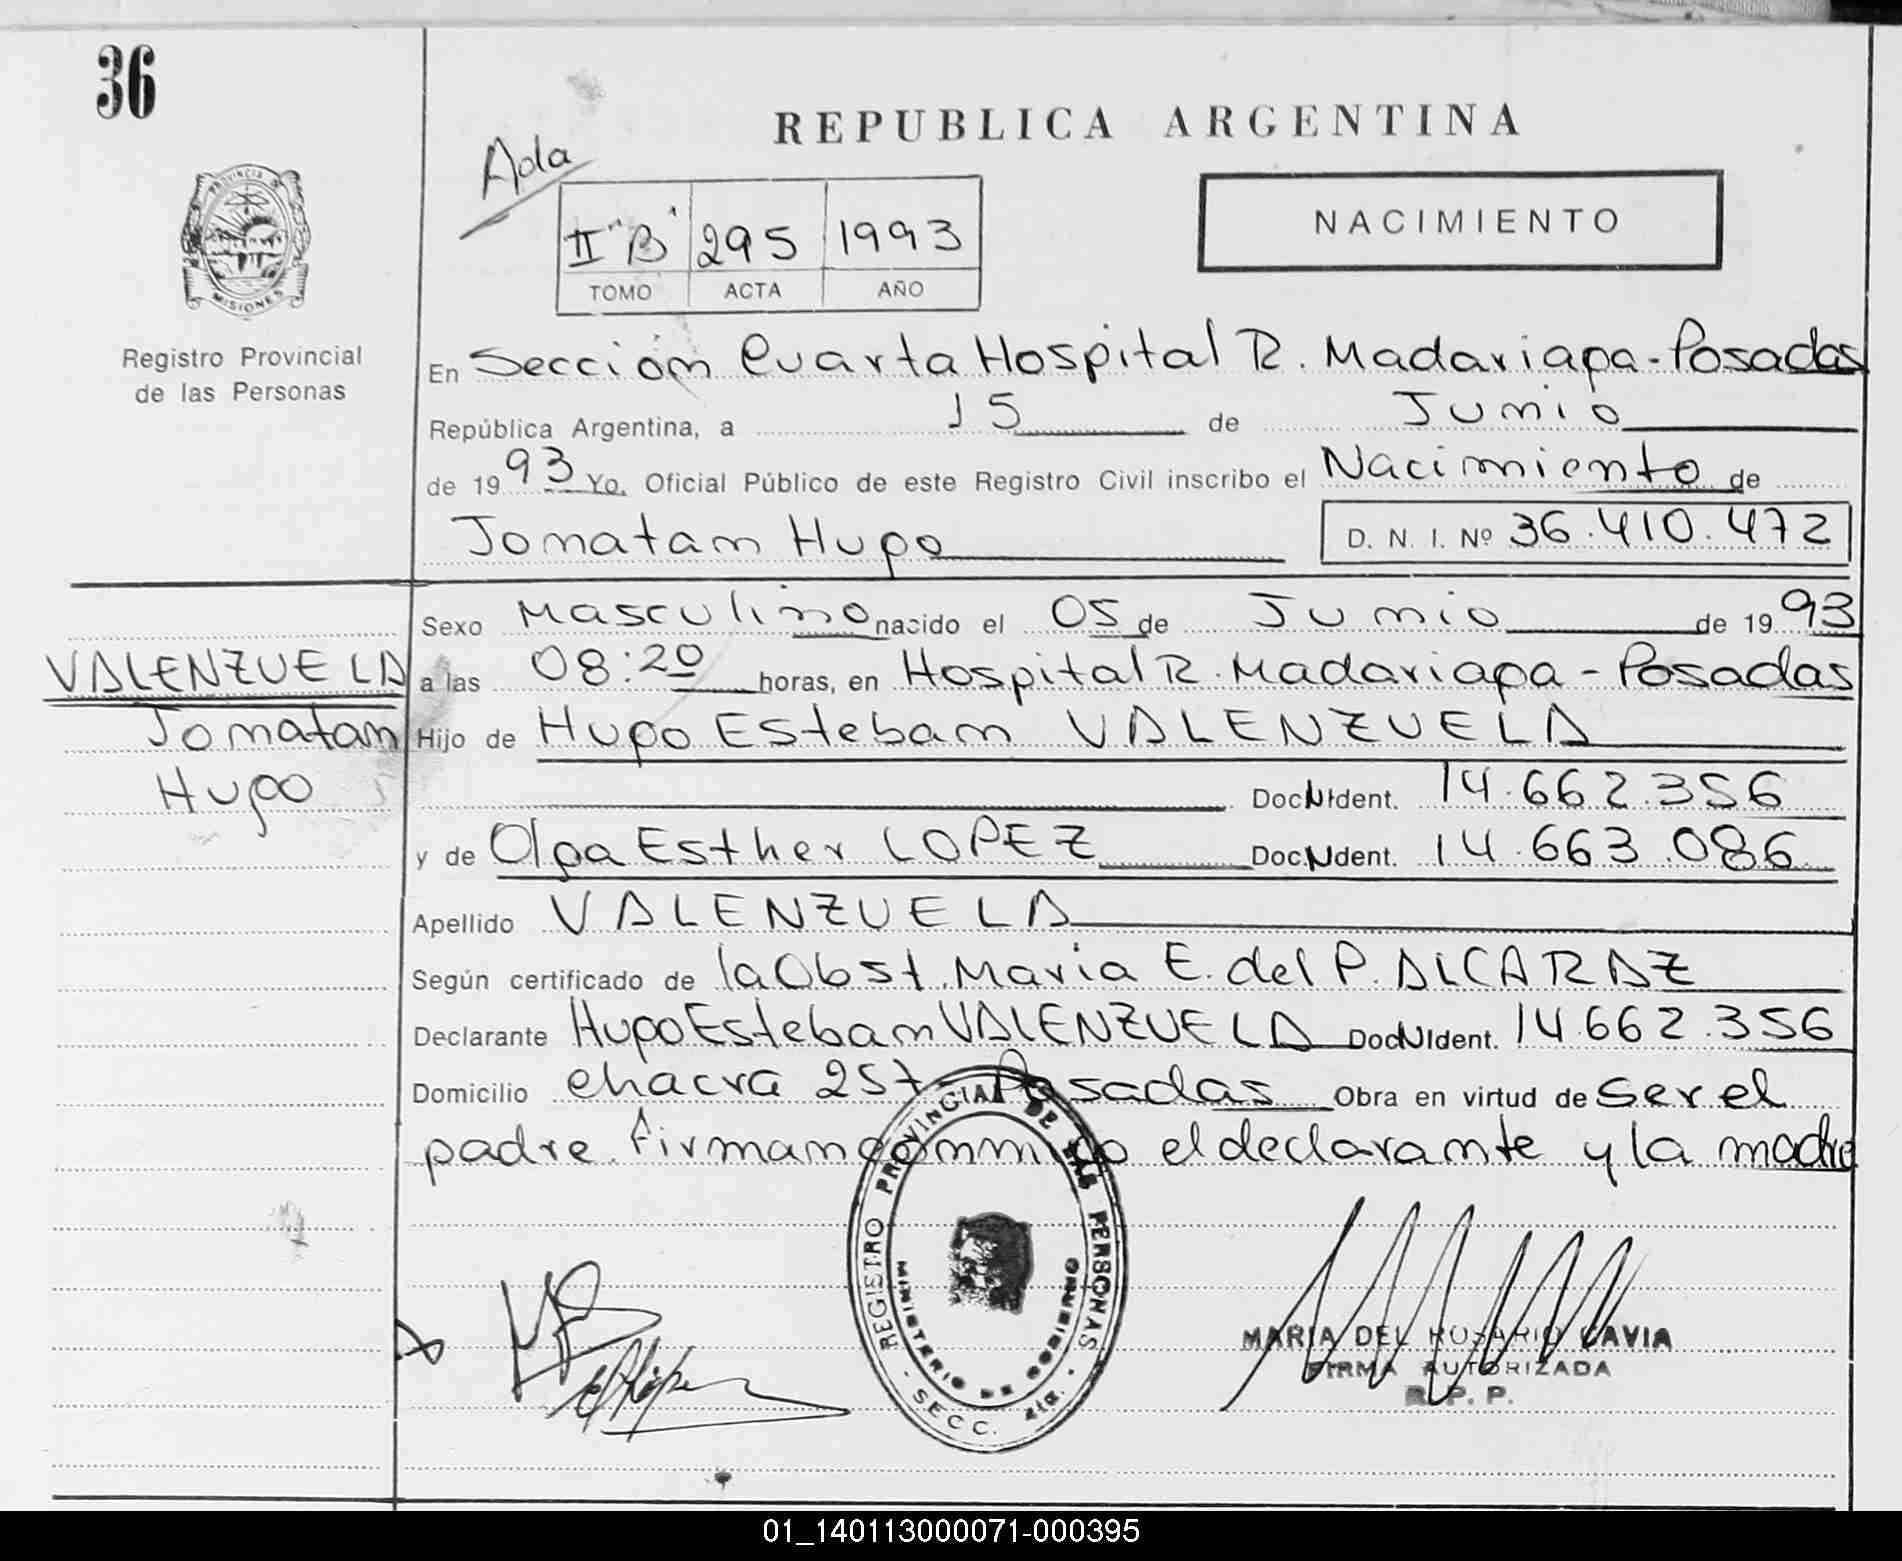 36
REPUBLICA ARGENTINA
Ada
NACIMIENTO
II "B" 295 1993
TOMO ACTA AÑO
PROVINCIA DE
MISIONES
Registro Provincial
de las Personas
En Sección Cuarta Hospital R. Madariaga - Posadas
República Argentina, a 15 de Junio
de 1993 Yo, Oficial Público de este Registro Civil inscribo el Nacimiento de
Jonatan Hugo D. N. I. Nº 36.410.472
Sexo Masculino nacido el 05 de Junio de 1993
VALENZUELA
Jonatan
Hugo
a las 08:20 horas, en Hospital R. Madariaga - Posadas
Hijo de Hugo Esteban VALENZUELA
Doc N Ident. 14.662.356
y de Olga Esther LOPEZ Doc N Ident. 14.663.086
Apellido VALENZUELA
Según certificado de la Obst. Maria E. del P. ALCARAZ
Declarante Hugo Esteban VALENZUELA Doc N Ident. 14.662.356
Domicilio chacra 257 - Posadas Obra en virtud de ser el
padre. Firman conmigo el declarante y la madre
REGISTRO PROVINCIAL DE LAS PERSONAS
MINISTERIO DE GOBIERNO
SECC. 4ta.
MARIA DEL ROSARIO GAVIA
FIRMA AUTORIZADA
R. P. P.
01_140113000071-000395